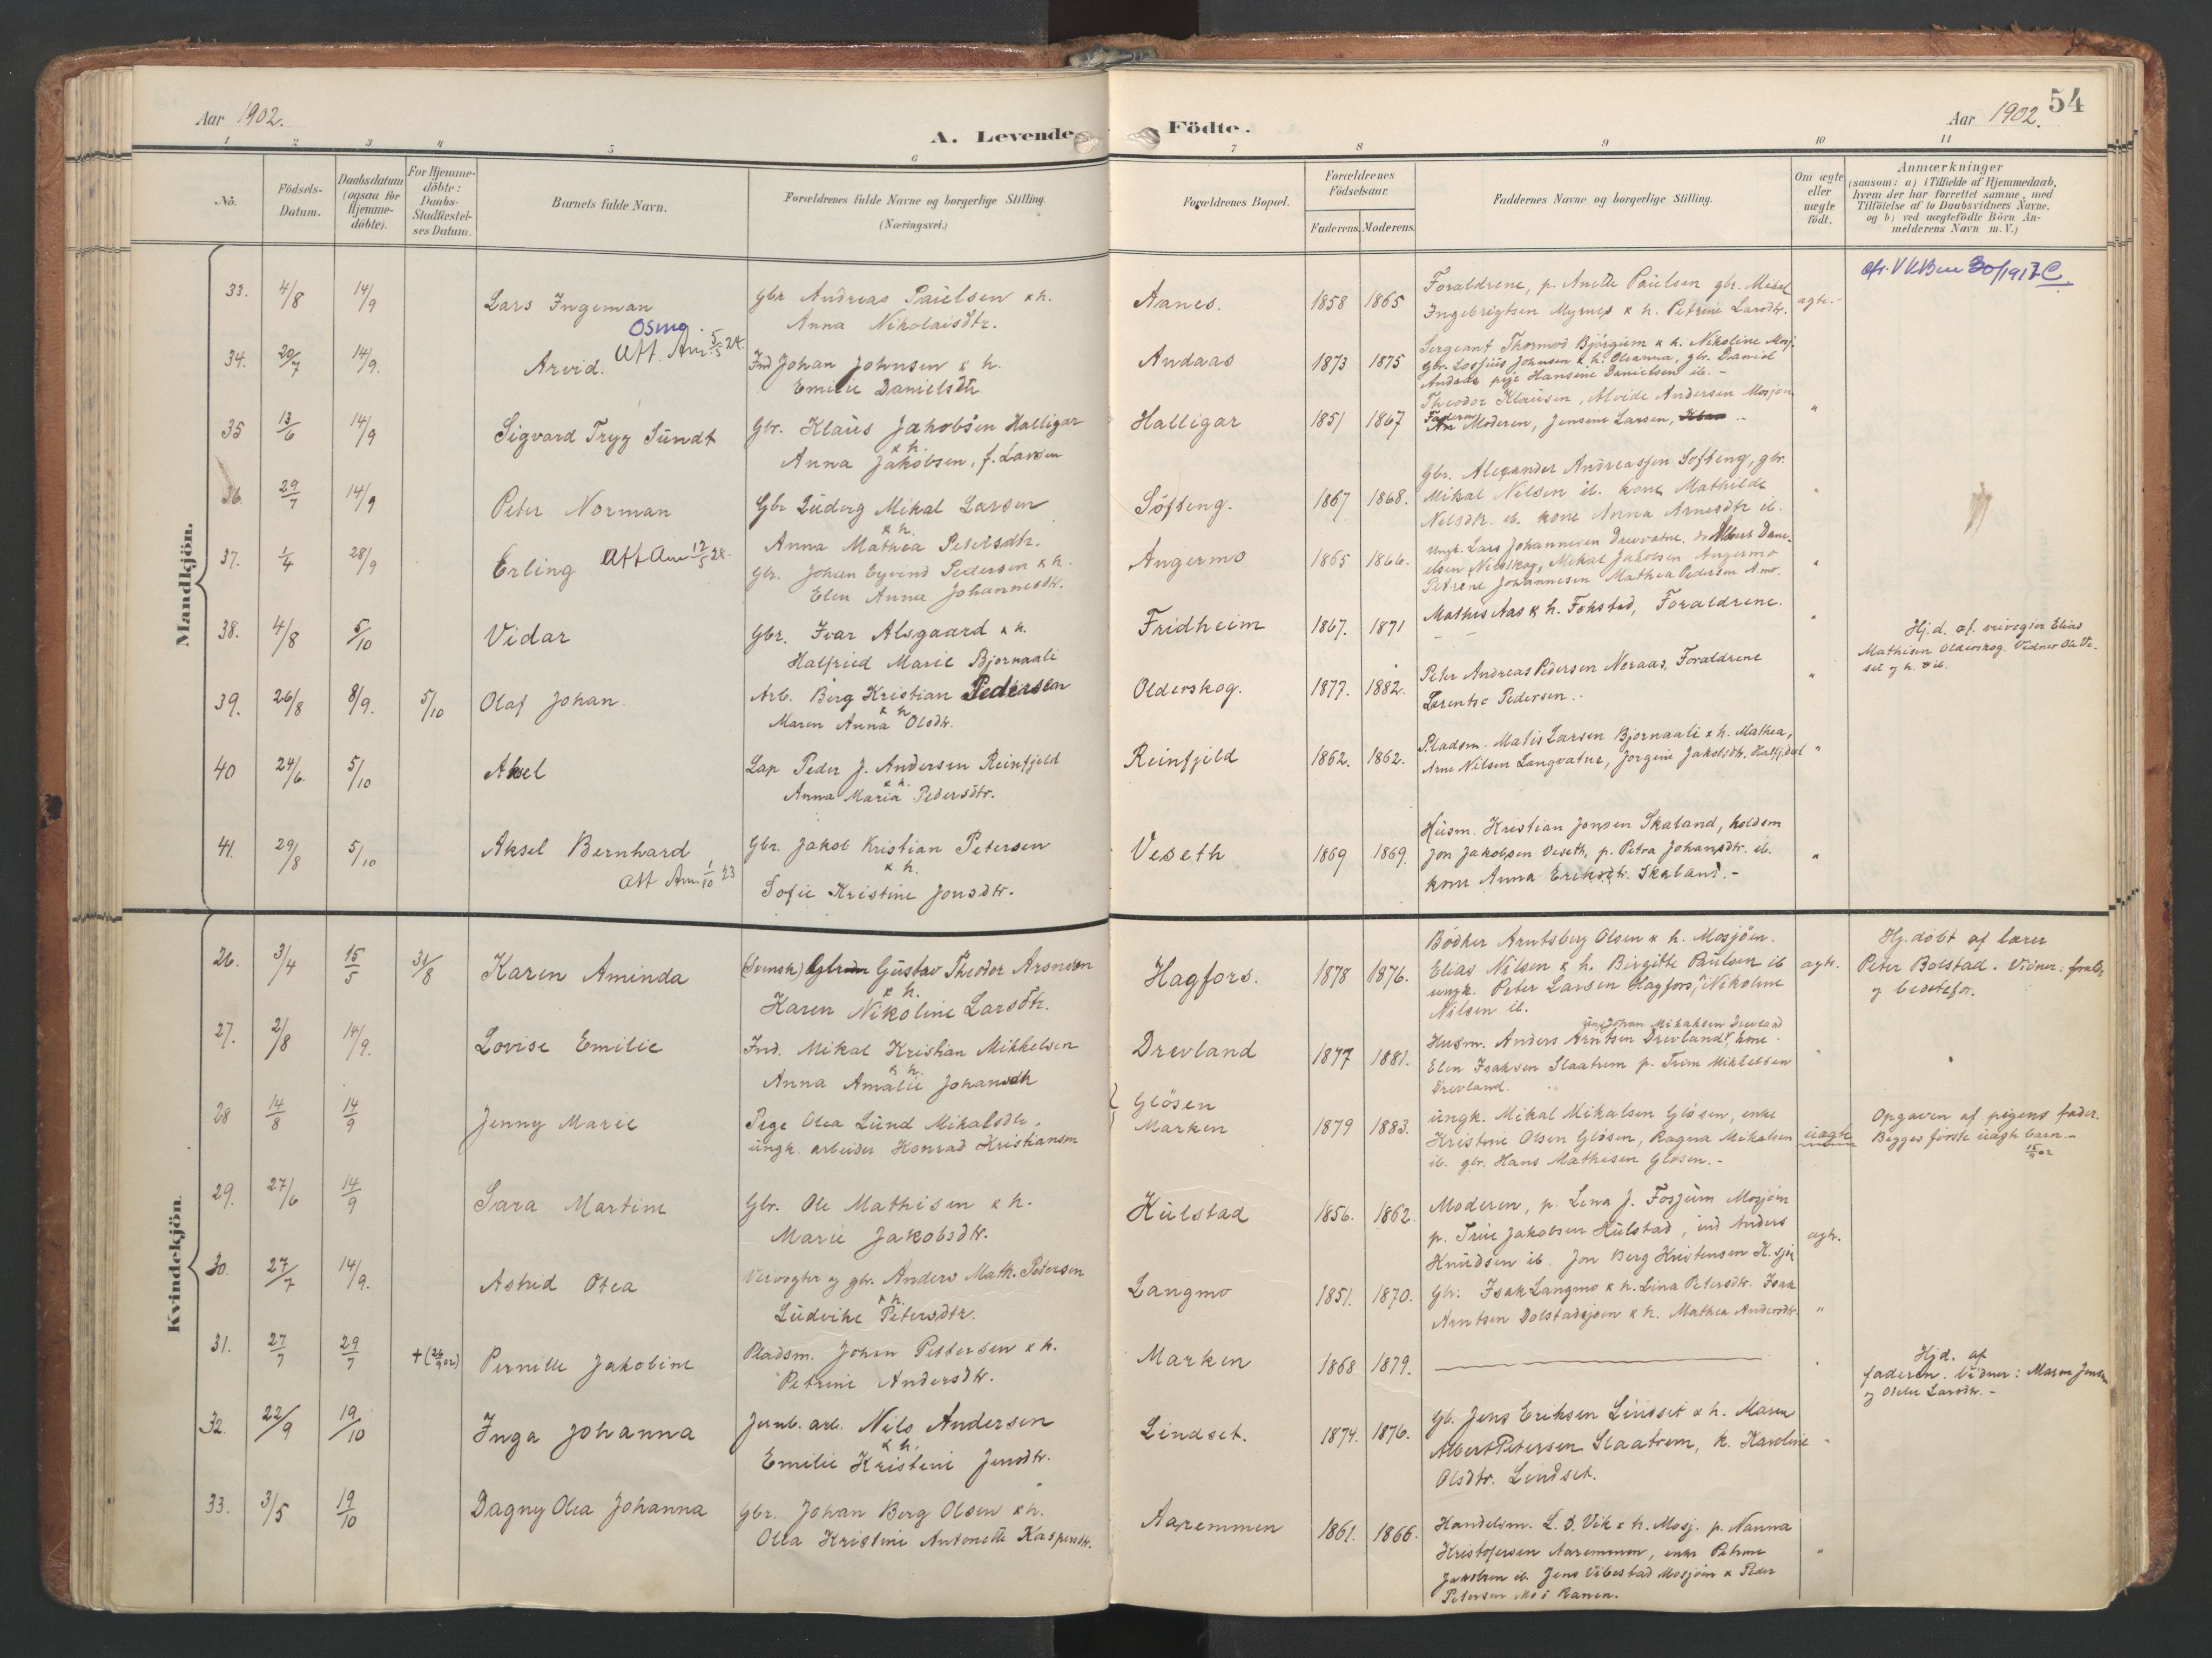 Aar 1902.
A. Levende
Födte.
Aar 1902.
54
1 2 3 4 5 6 7 8 9 10 11
No.
Födsels-Datum.
Daabsdatum (ogsaa for Hjemme-döbte).
For Hjemme-döbte: Daabs-Stadfæstel-ses Datum.
Barnets fulde Navn.
Forældrenes fulde Navne og borgerlige Stilling.
(Næringsvei.)
Forældrenes Bopæl.
Forældrenes Födselsaar.
Faderens. Moderens.
Faddernes Navne og borgerlige Stilling.
Om ægte eller uægte födt.
Anmærkninger
(saasom: a) i Tilfælde af Hjemmedaab,
hvem der har forrettet samme, med
Tilföielse af to Daabsvidners Navne,
og b) ved uægtefödte Börn An-
melderens Navn m. V.)
Mandkjön.
33. 4/8 14/9 Lars Ingeman
Gbr Andreas Paulsen & h.
Anna Nikolaisdtr.
Aanes. 1858 1865
Foraldrene, p. Anette Paulsen gbr. Mikal
Ingebrigtsen Myrnes & h. Petrine Larsdtr.
ægte.
34. 20/7 14/9. Arvid. Osmo.
Att. Am. 5/5 24.
Ind Johan Johnsen & h.
Emelie Danielsdtr
Andaas 1873 1875
Sergeant Thormod Bjørgum & h. Nikoline Mosj.
Gbr. Losjius Johnsen & h. Oleanna, gbr. Daniel
Andaas pige Hansine Danielsen ib. -
35 13/6 14/9 Sigvard Tryg Sundt
Gbr. Klaus Jakobsen Halligar
& h.
Anna Jakobsen, f. Larsen
Halligar 1851 1867
Theodor Klausen, Alvide Andersen Mosjøen
Faderen
Moderen, Jensine Larsen, "
36. 29/7 14/9 Peter Norman
Gbr Ludvig Mikal Larsen
& h.
Anna Mathea Petersdtr.
Söfteng. 1867 1868.
Gbr. Alexander Andreassen Softeng, gbr.
Mikal Nilsen ib. kone Mathilde
Nilsdtr. ib. kone Anna Arnesdtr ib. "
37. 1/4 28/9 Erling Att Am 12/5 28.
Gbr. Johan Eyvind Pedersen & h.
Elen Anna Johannesdtr.
Angermo 1865 1866.
Ungk. Lars Johannesen Drevvatne. do Albert Dani-
elsen Nerskog, Mikal Jakobsen Angermo
Petrine Johannesen Mathea Pedersen A.mo. "
38. 4/8 5/10 Vidar
Gbr. Ivar Alsgaard & h.
Halfried Marie Bjornaali
Fridheim 1867. 1871
Mathis Aas & h. Fokstad, Foraldrene. "
39. 26/8 8/9. 5/10 Olaf Johan
Arb. Berg Kristian Pedersen
& h
Maren Anna Olsdtr.
Olderskog. 1877. 1882.
Peter Andreas Pedersen Neraas, Foraldrene
Lorentse Pedersen. "
Hj.d. af veivogter Elias
Mathisen Olderskog. Vidner Ole Ve-
set og h. ib.
40 24/6 5/10 Aksel
Lap Peder J. Andersen Reinfjeld
& h.
Anna Maria Pedersdtr.
Reinfjeld 1862. 1862.
Pladsm. Matis Larsen Bjornaali & h. Mathea,
Arne Nilsen Langvatne, Jorgine Jakobsdtr. Hatfjdal "
41. 29/8 5/10 Aksel Bernhard
Att Am. 1/10 23
Gbr. Jakob Kristian Petersen
& h.
Sofie Kristine Jonsdtr.
Veseth 1869 1869.
Husm. Kristian Jonsen Skaland, holdsm
Jon Jakobsen Veseth, p. Petra Johansdtr. ib.
kone Anna Eriksdtr. Skaland. - "
Kvindekjön.
26. 3/4 15/5 31/8 Karen Aminda
(Svensk) Gustav Theodor Aronsen
& h.
Karen Nikoline Larsdtr.
Hagfors. 1878 1876.
Bödker Arntsberg Olsen & h. Mosjøen.
Elias Nilsen & h. Birgitte Paulsen ib
ungk. Peter Larsen Hagfors, Nikoline
Nilsen ib.
ægte.
Hj.döbt af lærer
Peter Bolstad. Vidner: foraldr
og bedstefor.
27. 2/8 14/9. Lovise Emilie
Ind. Mikal Kristian Mikkelsen
& h.
Anna Amalie Johansdtr
Drevland 1877 1881.
ungk. Johan Mikalsen Drevland
Husm. Anders Arntsen Drevland, kone
Elen Isaksen Slaatrem p. Trine Mikkelsen
Drevland. "
28 14/8 14/9 Jenny Marie
Pige Olea Lund Mikalsdtr.
ungk. arbeider Konrad Kristiansen
Glösen
Marken
1879 1883.
ungk. Mikal Mikalsen Glösen, enke
Kristine Olsen Glösen, Ragna Mikalsen
ib. gbr. Hans Mathisen Glosen. -
uægte
Opgaven af pigens fader.
Begges første uægte barn. -
15/9 02
29. 27/6 14/9 Sara Martine
Gbr. Ole Mathisen & h.
Marie Jakobsdtr.
Kulstad 1856. 1862.
Moderen, p. Lena J. Fosjum Mosjøen
p. Trine Jakobsen Kulstad, ind Anders
Knudsen ib. Jon Berg Kristensen K.sjø
ægte.
30. 27/7 14/9. Astrid Otea
Veivogter og gbr. Anders Math. Petersen
& h.
Ludvike Petersdtr.
Langmo 1851. 1870.
Gbr. Isak Langmo & h. Lina Petersdtr. Isak
Arntsen Dolstadsjøen & h. Mathea Andersdtr. "
31. 27/7 29/7 +(26/9 02) Pernille Jakobine
Pladsm. Johan Pettersen & h.
Petrine Andersdtr.
Marken 1868 1879.
Hjd. af
faderen. Vidner: Maren Jensen
og Oline Larsdtr. -
32. 22/9 19/10 Inga Johanna
Jernb. arb. Nils Andersen
& h.
Emilie Kristine Jensdtr.
Lindset. 1874. 1876.
Gb. Jens Eriksen Lindset & h. Maren
Albert Petersen Slaatrem, k. Karoline
Olsdtr. Lindset.
33. 3/5 19/10 Dagny Olea Johanna
Gbr. Johan Berg Olsen & h.
Olea Kristine Antonette Kaspersdtr.
Aaremmen 1861. 1866.
Handelsm. L. D. Vik & h. Mosj. p. Nanna
Kristofersen Aaremmen, enke Petrine
Jakobsen ib. Jens Vibestad Mosjøen & Peder
Petersen Mo i Ranen. "